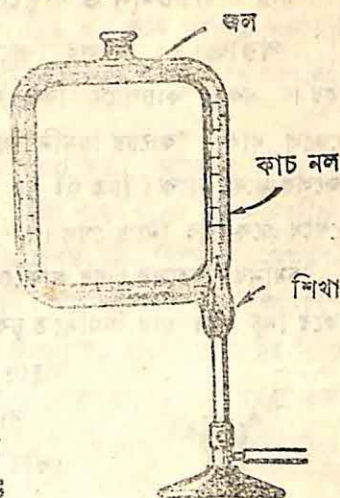 জল
কাচ নল
শিখা